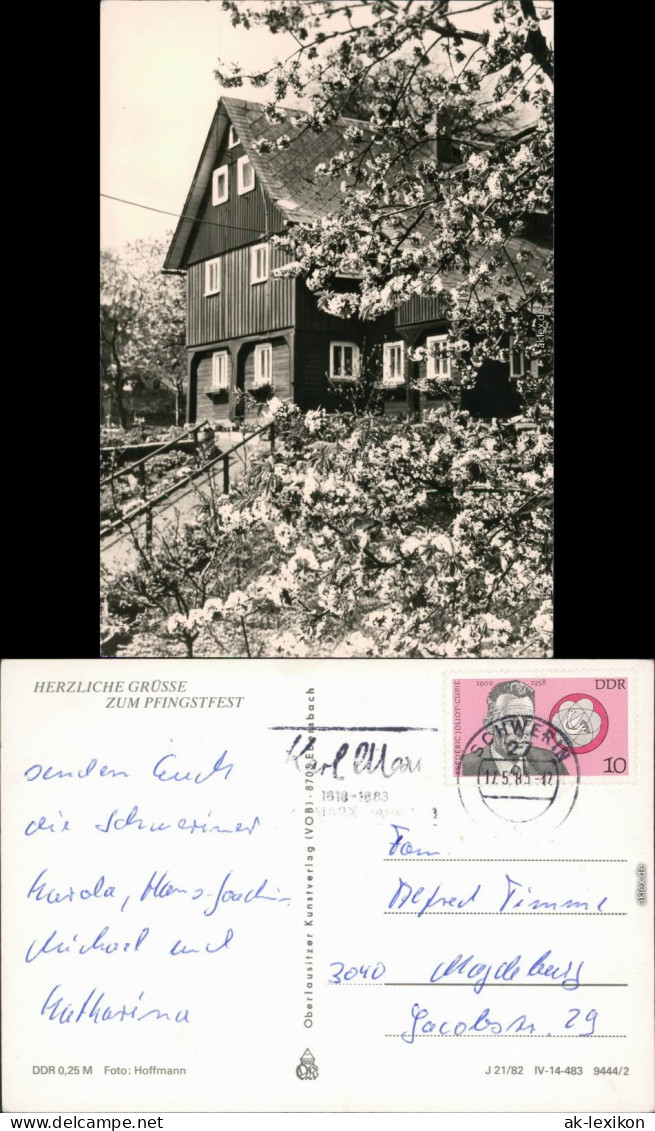 aklex.de
HERZLICHE GRÜSSE
ZUM PFINGSTFEST
senden Euch
die Schweriner
Karola, Hans-Joachim
Michael und
Katharina
DDR 0,25 M Foto: Hoffmann
Oberlausitzer Kunstverlag (VOB) · 8705 Ebersbach
Karl Marx
1818-1883
FREDERIC JOLIOT-CURIE
1900 1958
DDR
10
SCHWERIN
27
17.5.83-12
Fam.
Alfred Timme
3040 Magdeburg
Jacobstr. 29
J 21/82 IV-14-483 9444/2
aklex.de
ak-lexikon
ak-lexikon.de